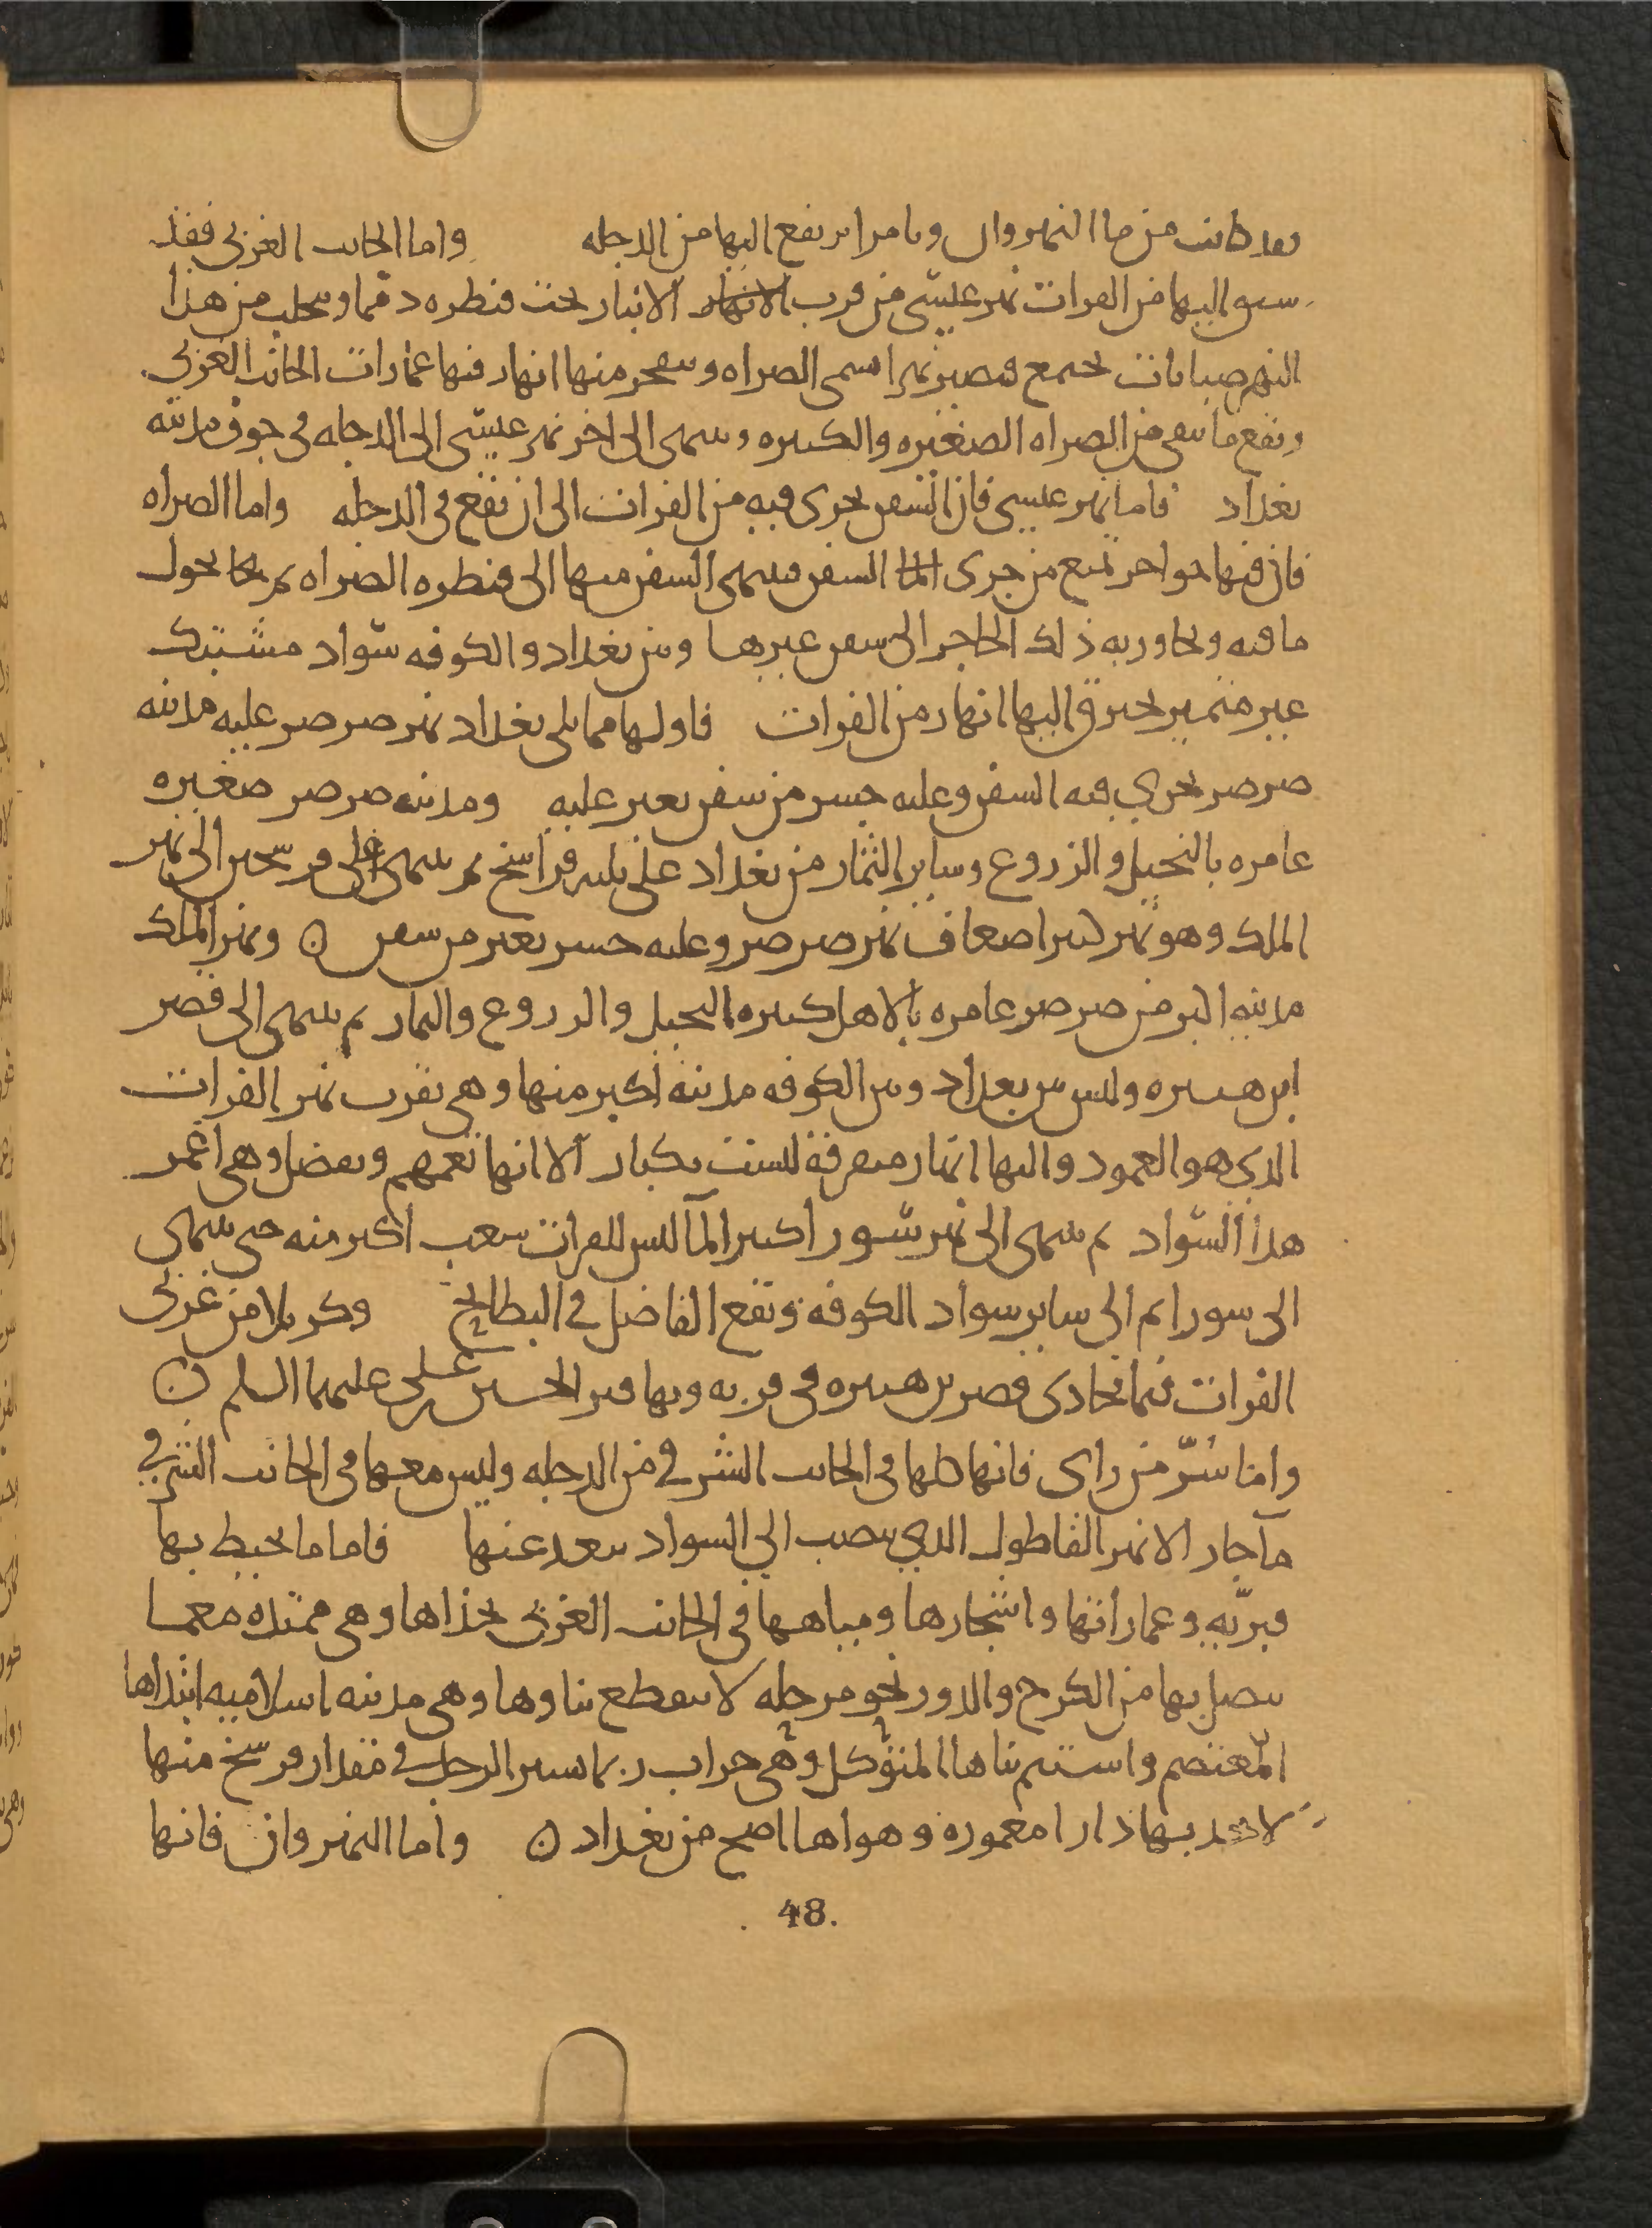 بعد كانت من ما النهروان وتامرا يرتفع اليها من الدجله واما الجانب الغربى فقد
سيق اليها من الفرات نهر عيسى من قرب الانهار الانبار تحت قنطره دمما ويتحلب من هذا
النهر صبابات تجتمع فتصير نهرا يسمى الصراه ويتفجر منها انهار فيها عمارات الجانب الغربى
وتقع ما يبقى من الصراه الصغيره والكبيره وينتهى الى اخر نهر عيسى الى الدجله فى جوف مدينه
بغداد فاما نهر عيسى فان السفن تجرى فيه من الفرات الى ان تقع فى الدجله واما الصراه
فان فيها حواجر تمنع من جرى الما السفن فينتهى السفن منها الى قنطره الصراه ثم يحول
ما فيه ويجاور به ذلك الحاجر الى سفن غيرها وبين بغداد والكوفه سواد مشتبك
غير متميز يخترق اليها انهار من الفرات فاولها مما يلى بغداد نهر صرصر عليه مدينه
صرصر تجرى فيه السفن وعليه جسر من سفن يعبر عليه ومدينه صرصر صغيره
عامره بالنخيل والزروع وساير الثمار من بغداد على ثلثه فراسخ ثم ينتهى على فرسخين الى نهر
الملك وهو نهر كبير اضعاف نهر صرصر وعليه جسر يعبر من سفن ن ونهر الملك
مدينه اكبر من صرصر عامره بالاهل كثيره النخيل والزروع والثمار ثم ينتهى الى قصر
ابن هبيره وليس بين بغداد وبين الكوفه مدينه اكبر منها وهى بقرب نهر الفرات
الذى هو العمود واليها انهار متفرقة ليست بكبار الا انها تعمهم وتفضل وهى اعمر
هذا السواد ثم ينتهى الى نهر سورا كثير الما ليس للفرات شعب اكبر منه حتى ينتهى
الى سورا ثم الى ساير سواد الكوفه وتقع الفاضل فى البطايح وكربلا من غربى
الفرات فيما يحادى قصر بن هبيره فى قريه وبها قبر الحسين بن على عليهما السلم ن
واما سرّ من راى فانها كلها فى الجانب الشرقى من الدجله وليس معها فى الجانب الشرقى
ما جار الا نهر القاطول الذى ينصب الى السواد ببعد عنها فاما ما يحيط بها
فبرّيه وعماراتها واشجارها ومياهها فى الجانب الغربى بحذاها وهى ممتده معما
يتصل بها من الكرخ والدور نحو مرحله لا ينقطع بناوها وهى مدينه اسلاميه ابتداها
المعتصم واستتم بناها المتوكل وهى خراب ربما يسير الرجل فى مقدار فرسخ منها
لا يجد بها دارا معموره وهواها اصح من بغداد ن واما النهروان فانها
48.